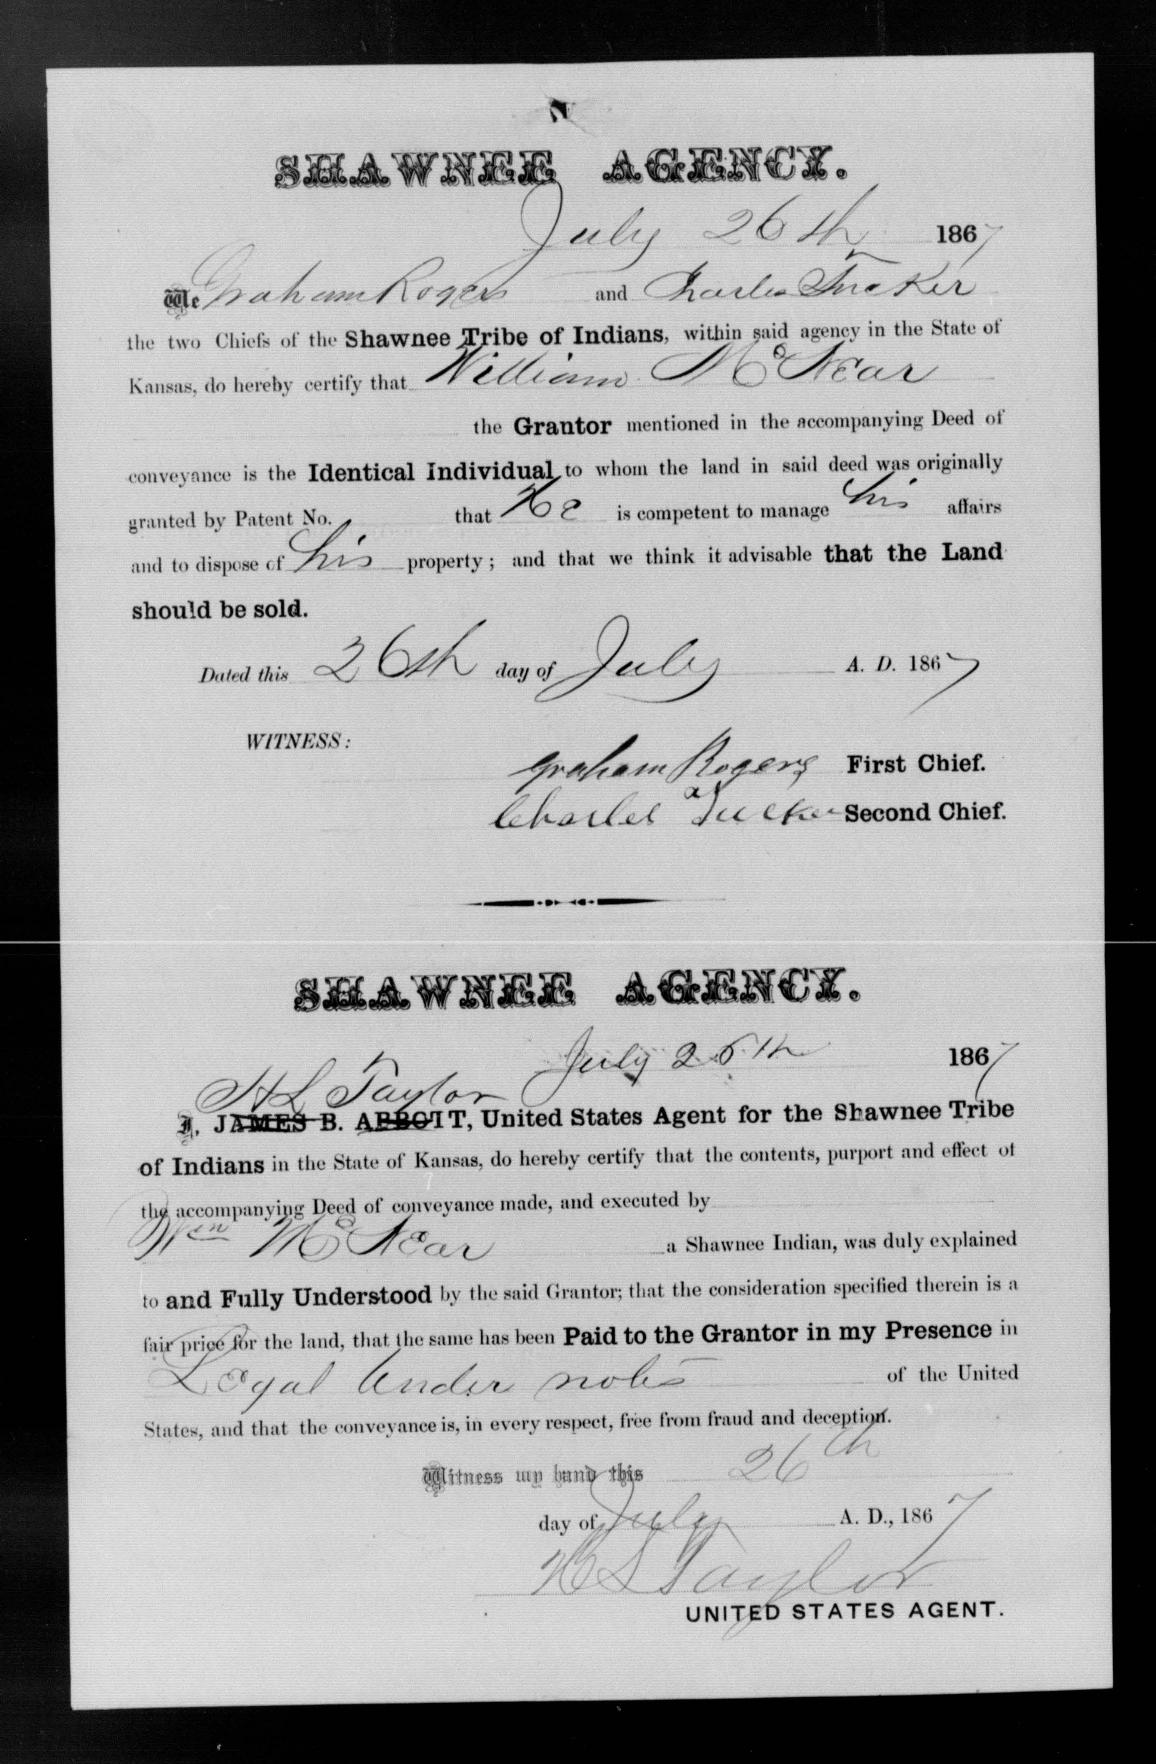 SHAWNEE AGENCY.
July 26th 1867
We Graham Rogers and Charles Tucker
the two Chiefs of the Shawnee Tribe of Indians, within said agency in the State of
Kansas, do hereby certify that William McNear
the Grantor mentioned in the accompanying Deed of
conveyance is the Identical Individual to whom the land in said deed was originally
granted by Patent No. that He is competent to manage his affairs
and to dispose of his property; and that we think it advisable that the Land
should be sold.
Dated this 26th day of July A. D. 1867
WITNESS:
Graham Rogers First Chief.
Charles Tucker Second Chief.
SHAWNEE AGENCY.
July 26th 1867
H L Taylor
I, JAMES B. ABBOTT, United States Agent for the Shawnee Tribe
of Indians in the State of Kansas, do hereby certify that the contents, purport and effect of
the accompanying Deed of conveyance made, and executed by
Wm McNear a Shawnee Indian, was duly explained
to and Fully Understood by the said Grantor; that the consideration specified therein is a
fair price for the land, that the same has been Paid to the Grantor in my Presence in
Legal tender notes of the United
States, and that the conveyance is, in every respect, free from fraud and deception.
Witness my hand this 26th
day of July A. D., 1867
H L Taylor
UNITED STATES AGENT.